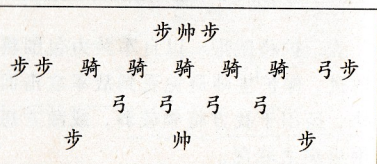 步帅步
步步 骑 骑 骑 骑 骑 弓步
弓 弓 弓 弓
步 帅 步